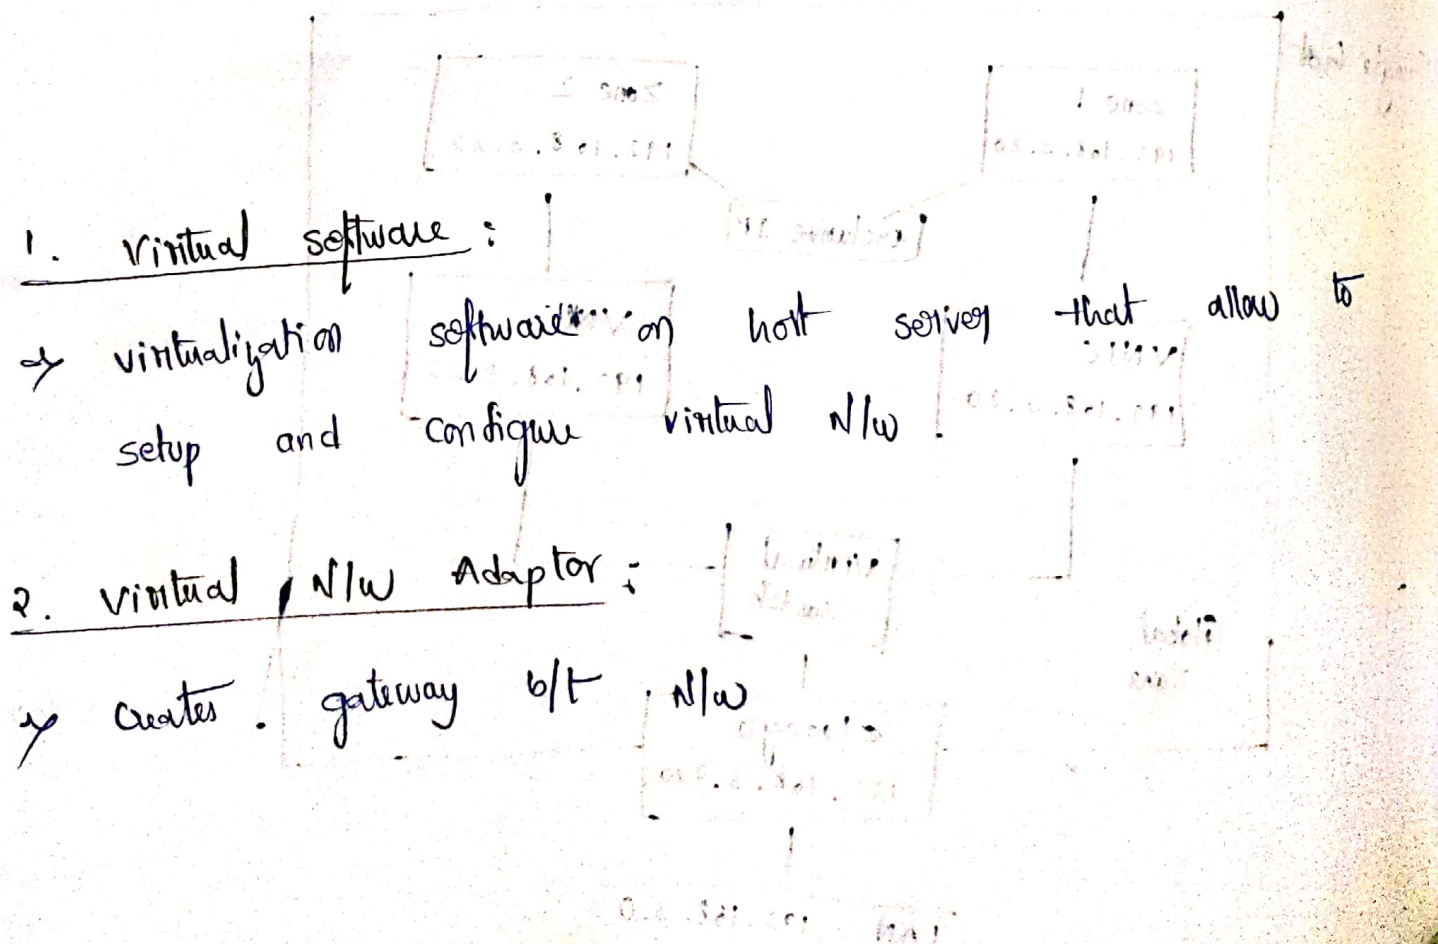 1. Virtual software :
→ virtualization software on host server that allow to
setup and configure virtual N/w .
2. Virtual N/w Adaptor :
→ creates gateway b/t N/w